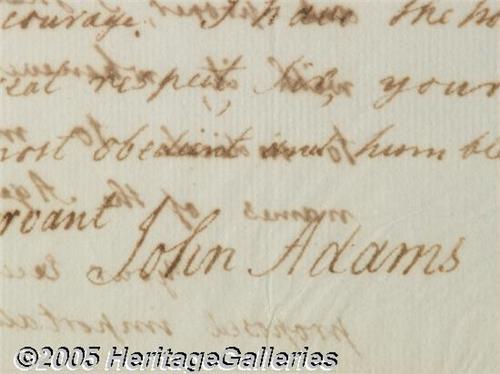 courage. I have the ho
eat respect, Sir, your
most obedient and humble
rvant John Adams
©2005 HeritageGalleries